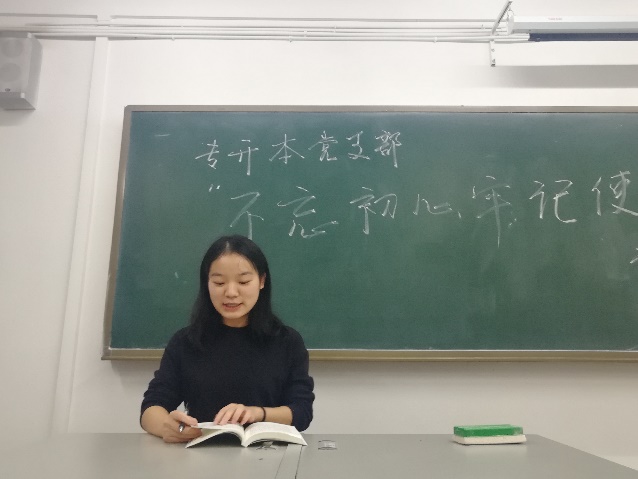 专升本党支部
“不忘初心，牢记使